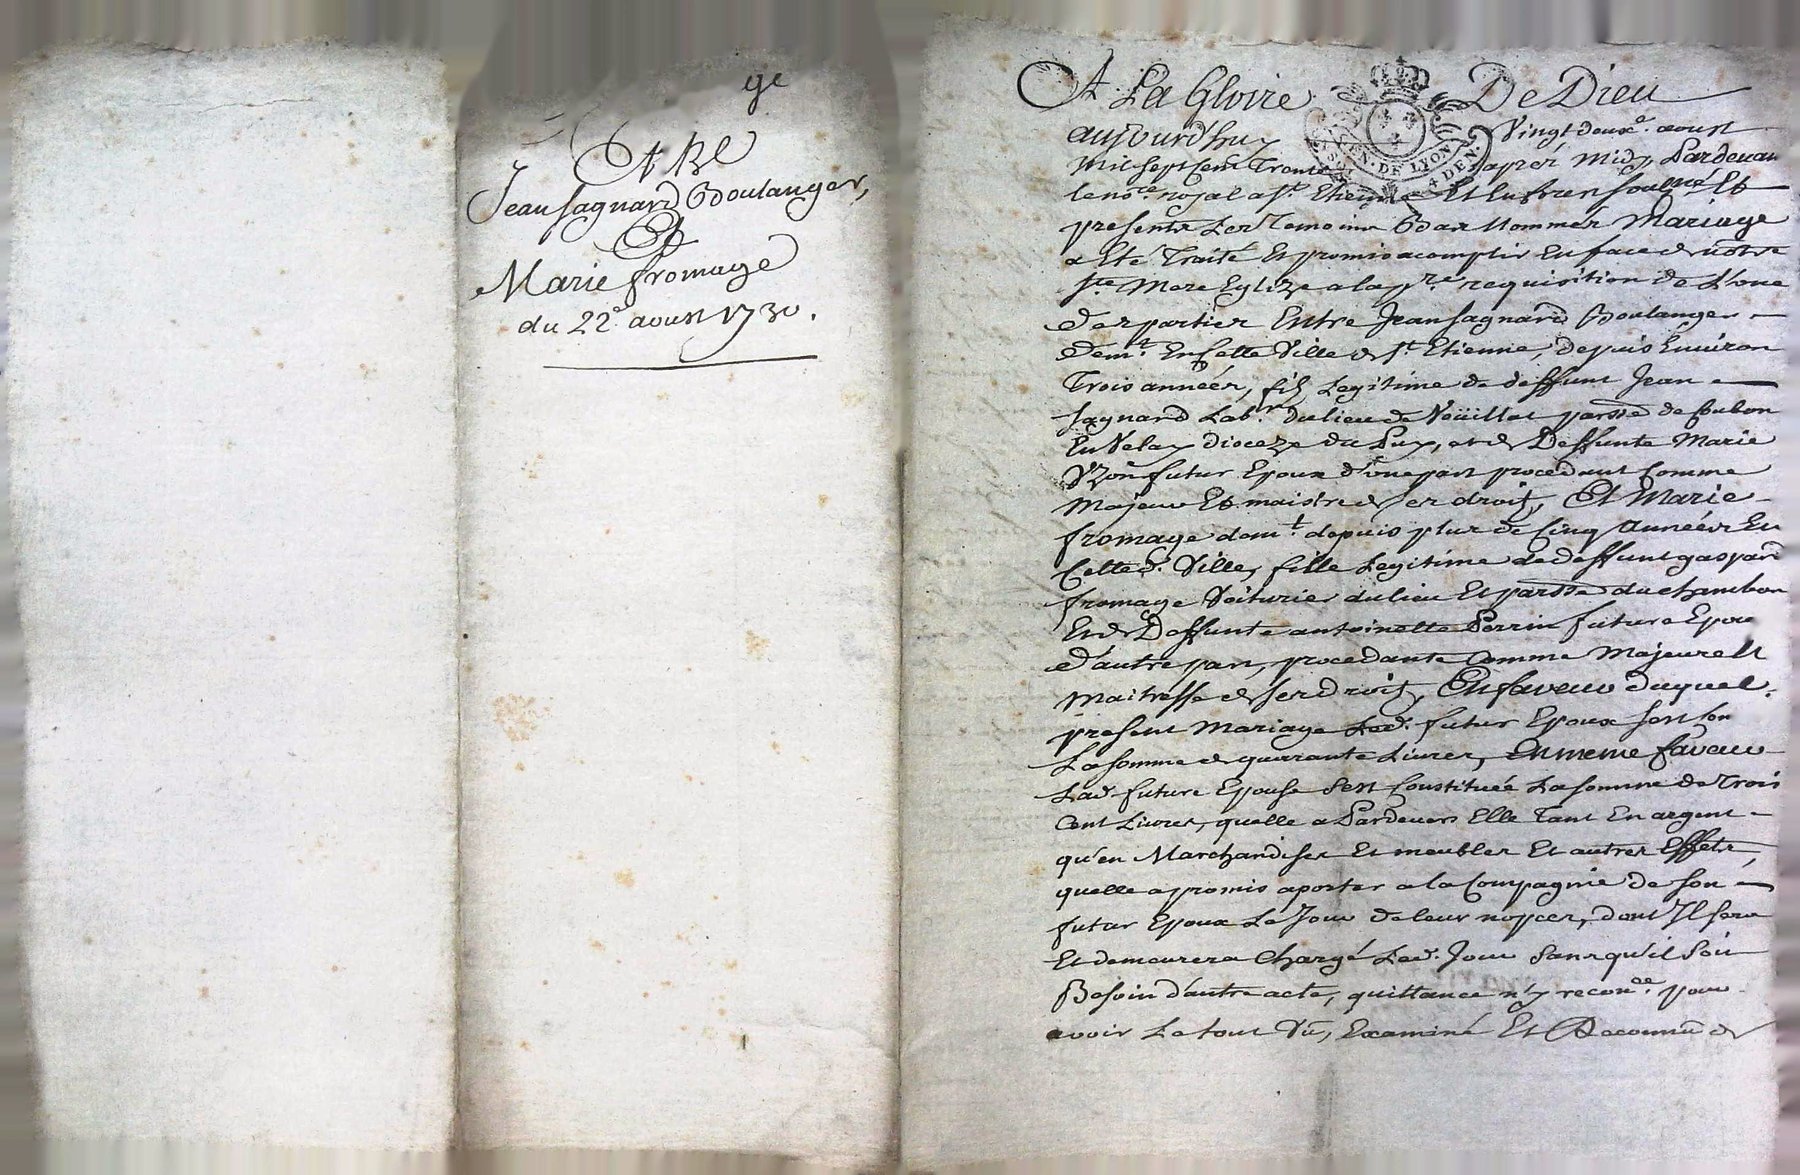 ge
Jean Sagnard Boulanger,
Et
Marie fromage
du 22e. aoust 1730.
A La Gloire De Dieu
aujourd'huy Vingt deuxe. aoust
mil sept Cent Trente apres midy Pardevan
le nore. royal a St. Etienne Et En foren soubzne. Et
presents Les Temoins Bas Nommes Mariage
a Eté Traité Et promis acomplir En face de notre
Ste. Mere Eglize a la pre. requisition de L'une
des parties Entre Jean Sagnard Boulanger
demt. En Cette Ville de St. Etienne, depuis Environ
Trois années, fils Legitime de deffunt Jean
Sagnard Labr. du lieu de parsse de Coubon
En Velay dioceze du Puy, et de Deffunte Marie
futur Epoux d'une part procedant Comme
Majeur Et maistre de ses droits, Et Marie
fromage demt. depuis plus de Cinq Années En
Cette d. Ville, fille Legitime de deffunt gaspard
fromage Voiturier du lieu Et parsse du chambon
Et de Deffunte antoinette Perrin future Epou
d'autre part, procedante Comme Majeure Et
Maitresse de ses droits, En faveur duquel
present Mariage Led. futur Epoux sest Con
La somme de quarante Livres, En meme faveur
Lad. future Epouse sest Constituée La somme de Trois
Cent Livres, quelle a Pardevers Elle Tant En argent
qu'en Marchandises Et meubles Et autres Effets,
quelle a promis aporter a la Compagnie de son
futur Epoux Le Jour de leur nopces, dont Il sera
Et demeurera Chargé Led. Jour sans qu'il soit
Besoin d'autre acte, quittance n'y reconce. pour
avoir Le tout Vû, Examiné Et Reconnu de
S. GEN. DE LYON DEN.